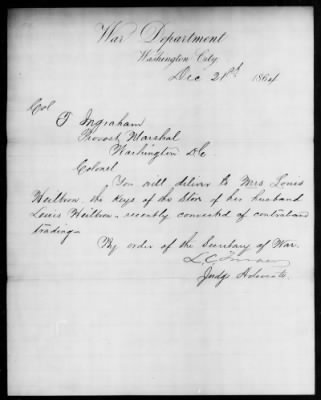 War Department
Washington City
Dec 21st 1864
Col
T Ingraham
Provost Marshal
Washington D.C.
Colonel
You will deliver to Mrs Louis
the keys of the Store of her husband
Lewis recently convicted of contraband
trading
By order of the Secretary of War.
L. C. Turner
Judge Advocate.